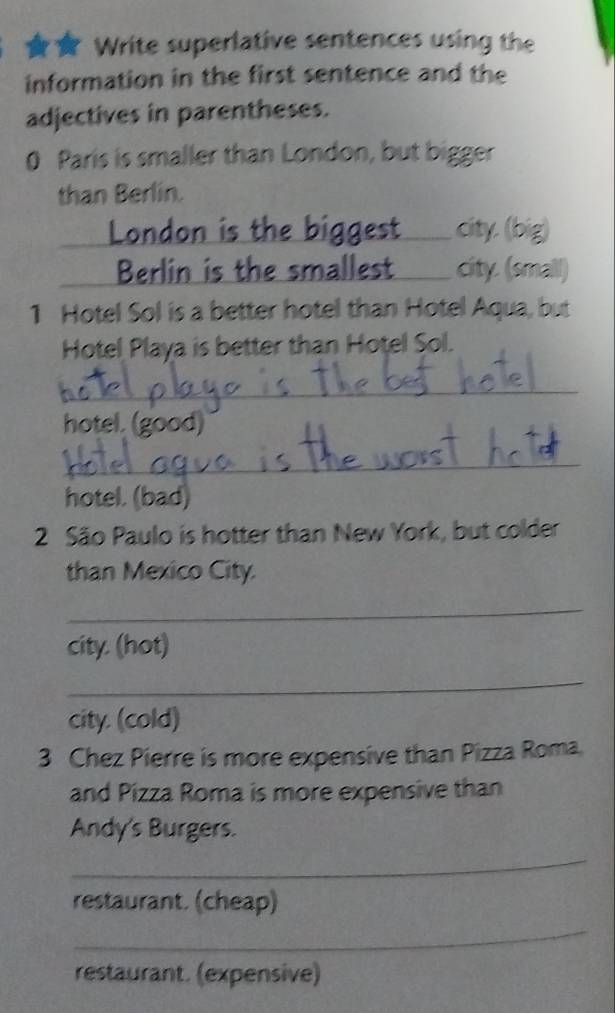 Write superlative sentences using the
information in the first sentence and the
adjectives in parentheses.
0 Paris is smaller than London, but bigger
than Berlin.
London is the biggest city. (big)
Berlin is the smallest city. (small)
1 Hotel Sol is a better hotel than Hotel Aqua, but
Hotel Playa is better than Hotel Sol.
hotel playa is the best hotel
hotel. (good)
Hotel aqua is the worst hotel
hotel. (bad)
2 São Paulo is hotter than New York, but colder
than Mexico City.
city. (hot)
city. (cold)
3 Chez Pierre is more expensive than Pizza Roma,
and Pizza Roma is more expensive than
Andy's Burgers.
restaurant. (cheap)
restaurant. (expensive)